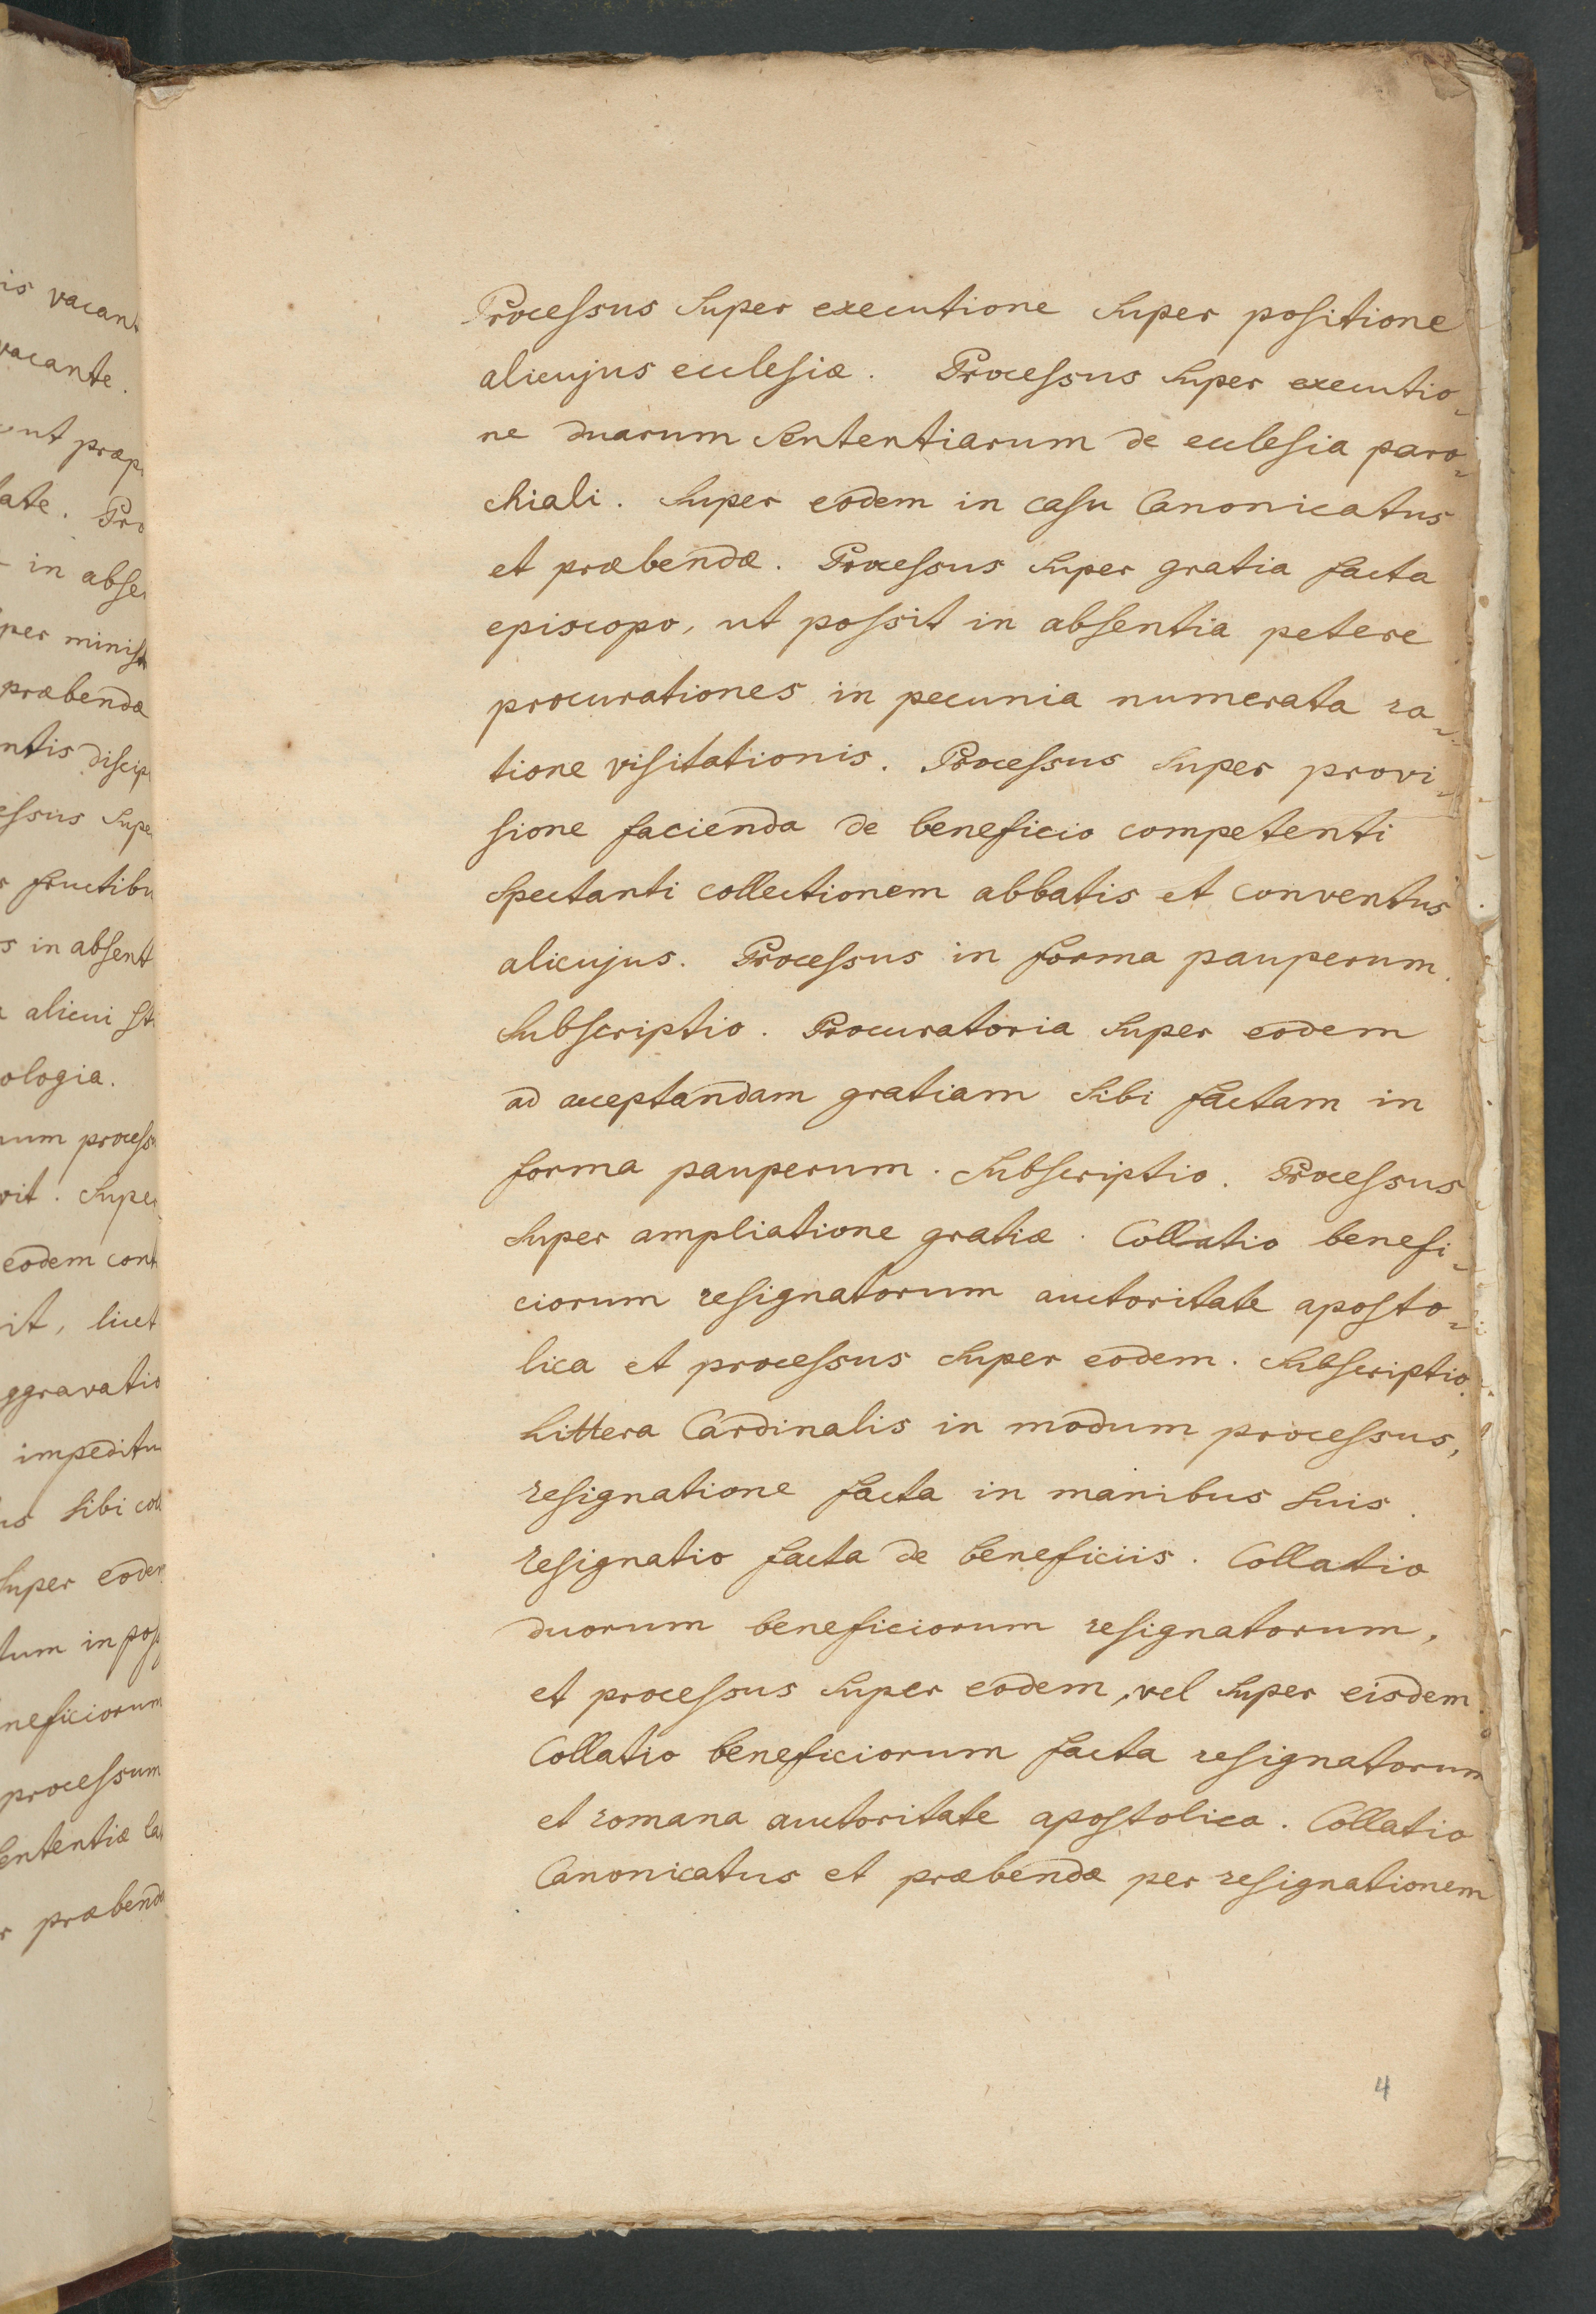 is vacant
vacante.
ent præp
tate. Pro
in abse
per minist
præbendæ
ntis discip
essus supe
fructibu
s in absent
alicui st
ologia.
num process
vit. Super
eodem cont
it, licet
ggravatio
impeditu
us sibi col
super eodem
tum in poss
neficiorum
processum
sententiæ la
præbend
Processus super executione super positione
alicujus ecclesiæ. Processus super executio-
ne duarum sententiarum de ecclesia paro-
chiali. super eodem in casu Canonicatus
et præbendæ. Processus super gratia facta
episcopo, ut possit in absentia petere
procurationes in pecunia numerata ra-
tione visitationis. Processus super provi-
sione facienda de beneficio competenti
spectanti collectionem abbatis et conventus
alicujus. Processus in forma pauperum.
subscriptio. Procuratoria super eodem
ad acceptandam gratiam sibi factam in
forma pauperum. subscriptio. Processus
super ampliatione gratiæ. Collatio benefi-
ciorum resignatorum auctoritate aposto-
lica et processus super eodem. subscriptio.
littera Cardinalis in modum processus,
resignatione facta in manibus suis.
resignatio facta de beneficiis. Collatio
duorum beneficiorum resignatorum,
et processus super eodem, vel super eisdem
Collatio beneficiorum facta resignatorum
et romana auctoritate apostolica. Collatio
Canonicatus et præbendæ per resignationem
4